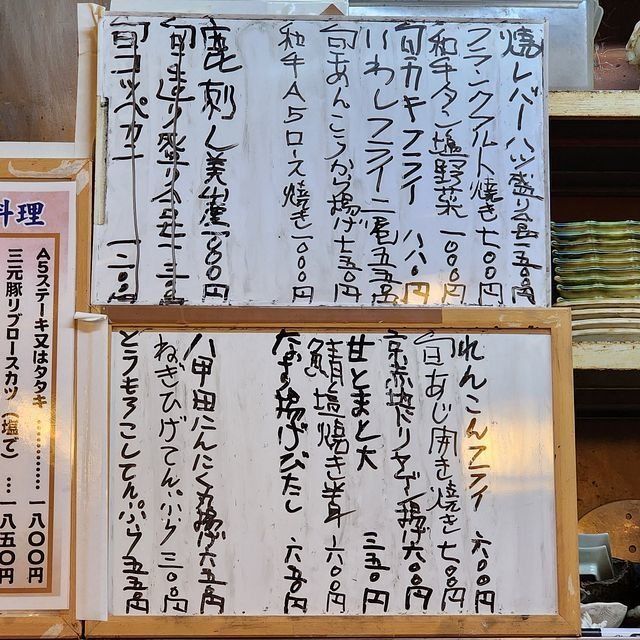 焼レバーハツ盛り合せ 一五〇〇円
フランクフルト焼き 七〇〇円
和牛タン塩野菜 一〇〇〇円
旬カキフライ 八八〇円
いわしフライ 二尾 五五〇円
旬あんこうから揚げ 七五〇円
和牛A5ロース焼き 一〇〇〇円
鹿刺し 一〇〇〇円
旬
旬コッペカニ 一二〇〇円
れんこんフライ 六〇〇円
旬あじ開き焼き 七〇〇円
京赤地ドリ 揚げ 六〇〇円
甘とまと大 三五〇円
鯖塩焼き半身 六〇〇円
なす揚げびたし 六五〇円
八甲田にんにく丸揚げ 六五〇円
ねぎひげてんぷら 三〇〇円
とうもろこしてんぷら 五五〇円
料理
A5ステーキ又はタタキ ………… 一八〇〇円
三元豚リブロースカツ（塩で） … 一八五〇円